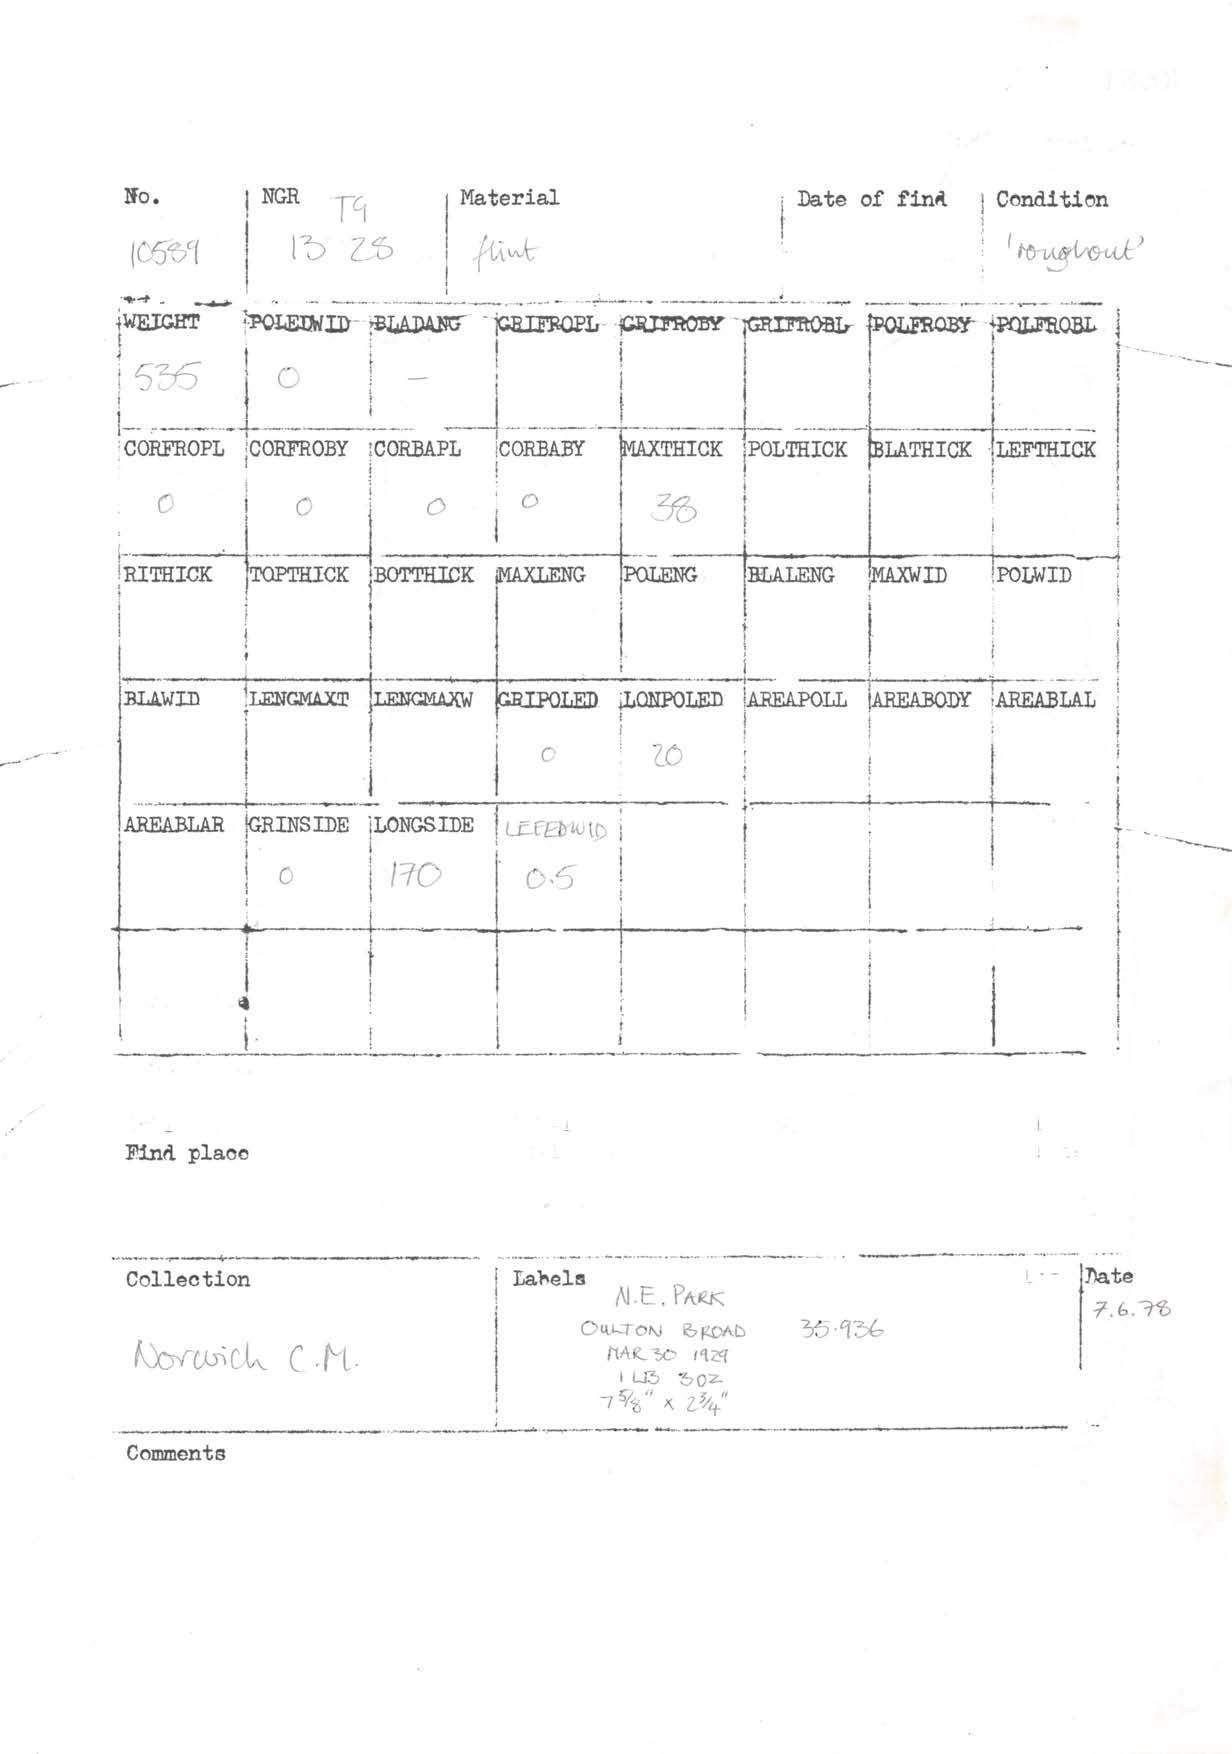 No. NGR Material Date of find Condition
TG
10589 13 28 flint 'roughout'
WEIGHT POLEDWID BLADANG GRIFROPL GRIFROBY GRIFROBL POLFROBY POLFROBL
535 0 —
CORFROPL CORFROBY CORBAPL CORBABY MAXTHICK POLTHICK BLATHICK LEFTHICK
0 0 0 0 38
RITHICK TOPTHICK BOTTHICK MAXLENG POLENG BLALENG MAXWID POLWID
BLAWID LENGMAXT LENGMAXW GRIPOLED LONPOLED AREAPOLL AREABODY AREABLAL
0 20
AREABLAR GRINSIDE LONGSIDE LEFEDWID
0 170 0.5
Find place
Collection Labels Date
N.E. PARK 7.6.78
OULTON BROAD 35.936
Norwich C.M. MAR 30 1929
1 LB 3 OZ
7 5/8" x 2 3/4"
Comments